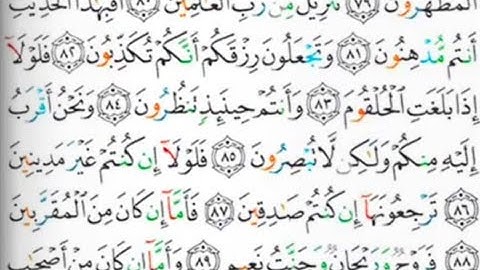 ٱلْمُطَهَّرُونَ ٧٩ تَنزِيلٌ مِّن رَّبِّ ٱلْعَٰلَمِينَ ٨٠ أَفَبِهَٰذَا ٱلْحَدِيثِ
أَنتُم مُّدْهِنُونَ ٨١ وَتَجْعَلُونَ رِزْقَكُمْ أَنَّكُمْ تُكَذِّبُونَ ٨٢ فَلَوْلَآ
إِذَا بَلَغَتِ ٱلْحُلْقُومَ ٨٣ وَأَنتُمْ حِينَئِذٍ تَنظُرُونَ ٨٤ وَنَحْنُ أَقْرَبُ
إِلَيْهِ مِنكُمْ وَلَٰكِن لَّا تُبْصِرُونَ ٨٥ فَلَوْلَآ إِن كُنتُمْ غَيْرَ مَدِينِينَ
٨٦ تَرْجِعُونَهَآ إِن كُنتُمْ صَٰدِقِينَ ٨٧ فَأَمَّآ إِن كَانَ مِنَ ٱلْمُقَرَّبِينَ
٨٨ فَرَوْحٌ وَرَيْحَانٌ وَجَنَّتُ نَعِيمٍ ٨٩ وَأَمَّآ إِن كَانَ مِنْ أَصْحَٰبِ